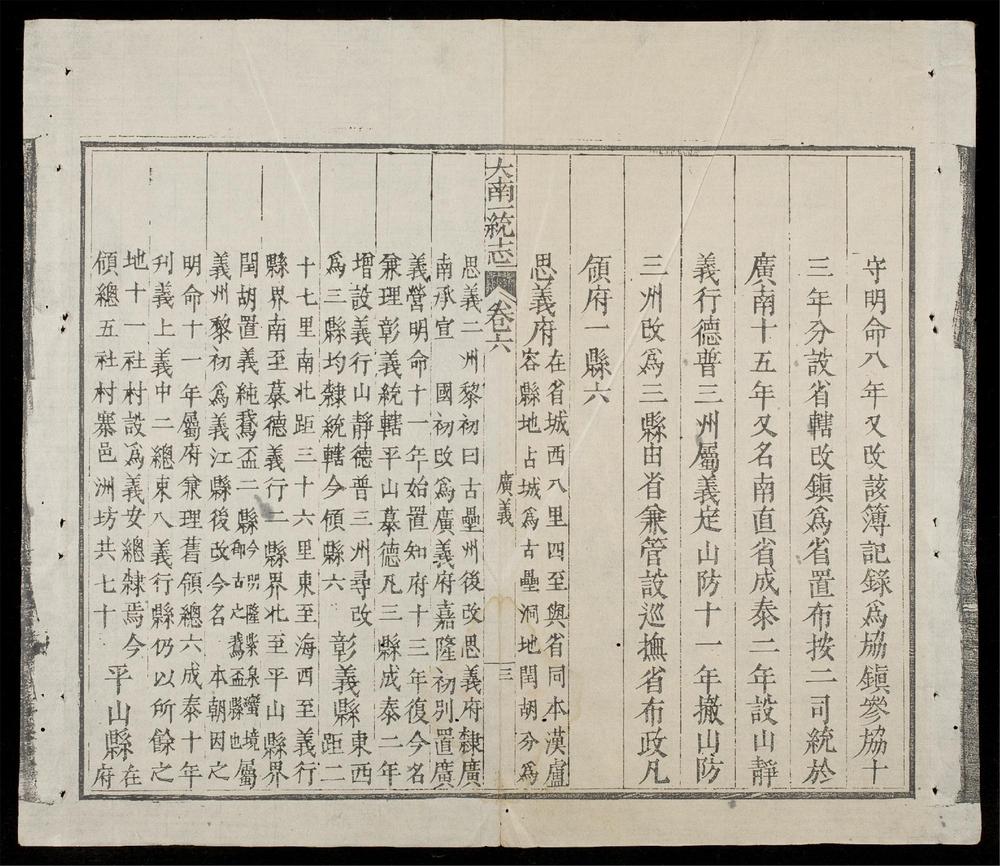 守明命八年又改該簿記錄為協鎮參協十
三年分設省轄改鎮為省置布按二司統於
廣南十五年又名南直省成泰二年設山靜
義行德普三州屬義定山防十一年撤山防
三州改為三縣由省兼管設巡撫省布政凡
領府一縣六
思義府
在省城西八里四至與省同本漢盧
容縣地占城為古壘洞地閏胡分為
大南一統志
卷六
廣義
三
思義二州黎初曰古壘州後改思義府隸廣
南承宣 國初改為廣義府嘉隆初別置廣
義營明命十一年始置知府十三年復今名
兼理彰義統轄平山慕德凡三縣成泰二年
增設義行山靜德普三州尋改
為三縣均隸統轄今領縣六
彰義縣
東西距二
十七里南北距三十六里東至海西至義行
縣界南至慕德義行二縣界北至平山縣界
閏胡置義純鵞盃二縣
今閒隆紫泉蠻境
卽古之鵞盃縣也
屬
義州黎初為義江縣後改今名 本朝因之
明命十一年屬府兼理舊領總六成泰十年
刋義上義中二總東八義行縣仍以所餘之
地十一社村設為義安總隸焉今
領總五社村寨邑洲坊共七十
平山縣
在府